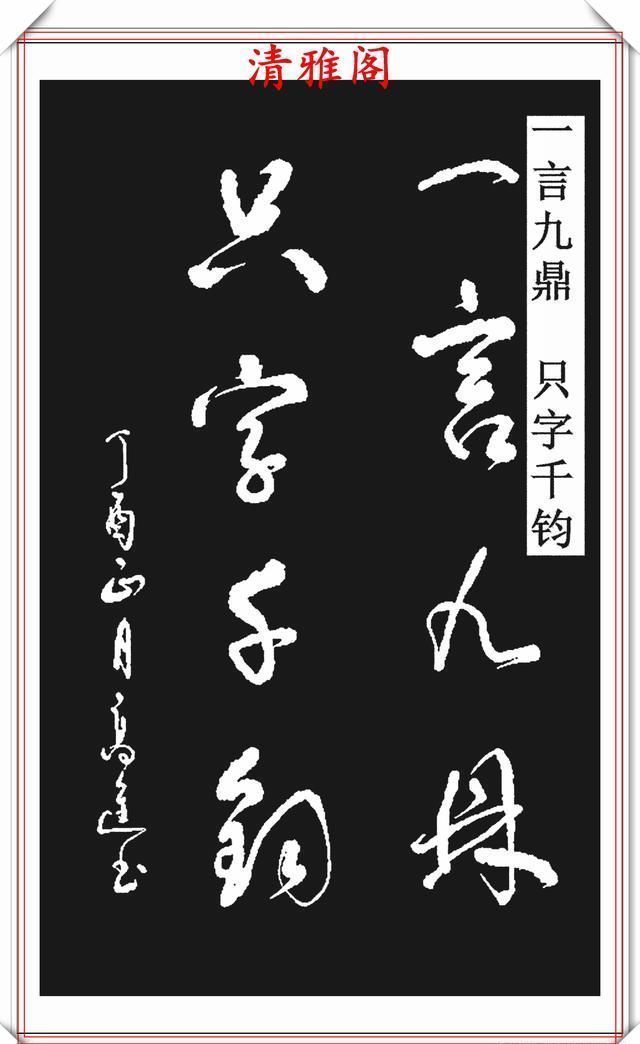 清雅阁
一言九鼎 只字千钧
一言九鼎
只字千钧
丁酉正月高進书